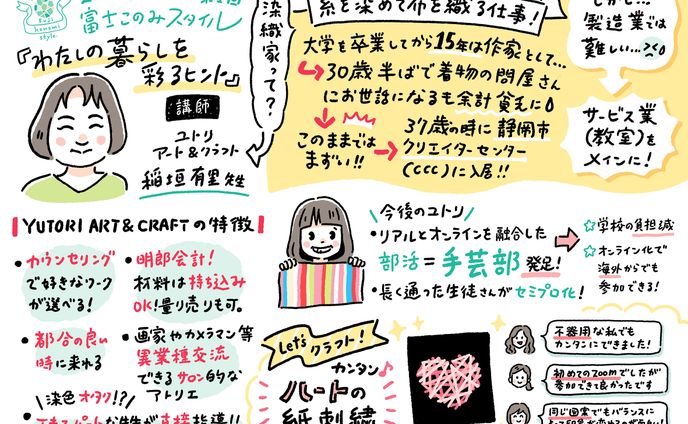 富士このみスタイル
Fuji
konomi
style
『わたしの暮らしを
彩るヒント』
講師
ユトリ
アート&クラフト
稲垣有里先生
染織家って?
糸を染めて布を織る仕事!
大学を卒業してから15年は作家として…
30歳半ばで着物の問屋さん
にお世話になるも余計貧乏に
このままでは
まずい!!
37歳の時に静岡市
クリエイターセンター
(CCC)に入居!!
製造業では
難しい…
サービス業
(教室)を
メインに!
YUTORI ART&CRAFTの特徴
・カウンセリング
で好きなワーク
が選べる!
・明郎会計!
材料は持ち込み
OK!量り売りも可。
・都合の良い
時に来れる
・画家やカメラマン等
異業種交流
できるサロン的な
アトリエ
染色オタク!?
今後のユトリ
・リアルとオンラインを融合した
部活=手芸部発足!
・長く通った生徒さんがセミプロ化!
☆学校の負担減
☆オンライン化で
海外からでも
参加できる!
Let's クラフト!
カンタン♪
ハートの
紙刺繍
不器用な私でも
カンタンにできました!
初めてのzoomでしたが
参加できて良かったです
同じ図案でもバランスに